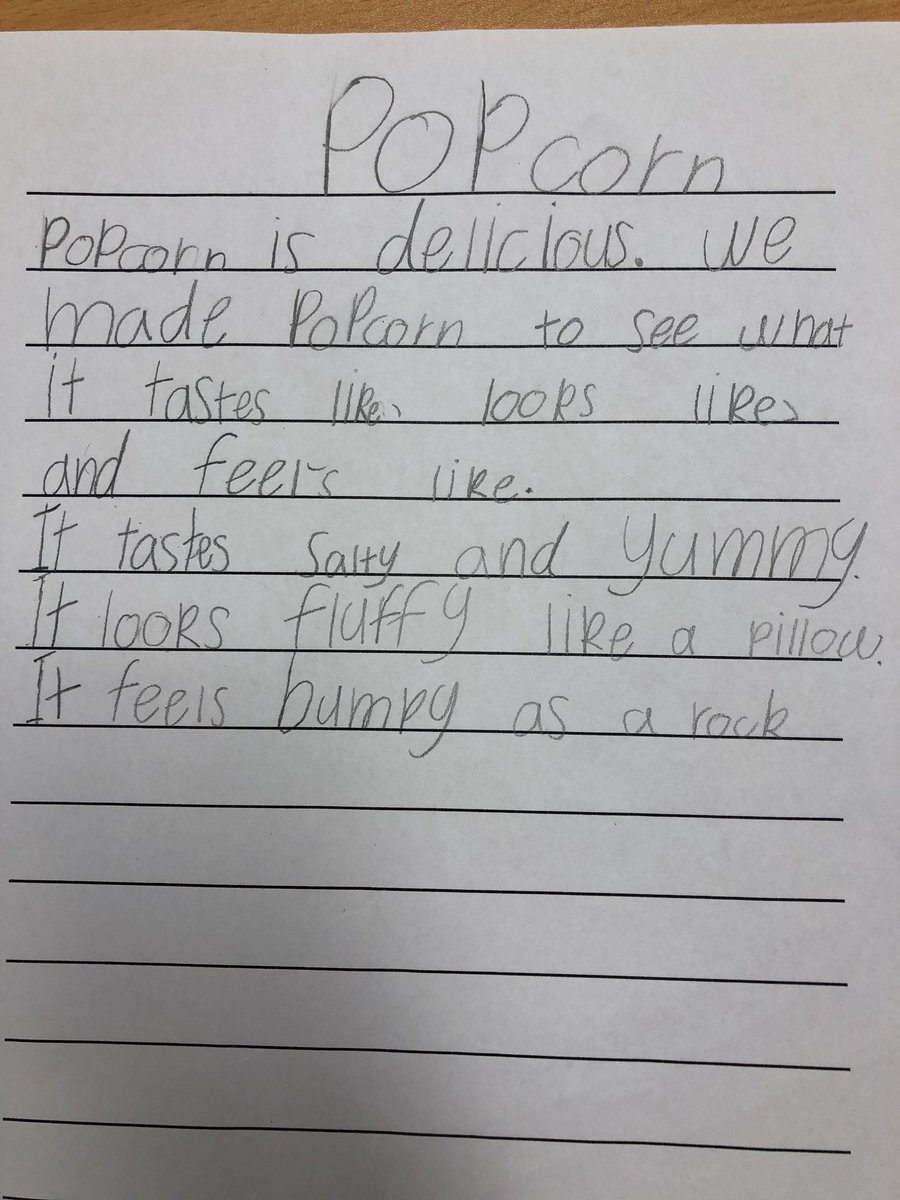 POPcorn
PoPcorn is delicious. We
made PoPcorn to see what
it tastes like, looks like,
and feels like.
It tastes salty and yummy.
It looks fluffy like a pillow.
It feels bumpy as a rock